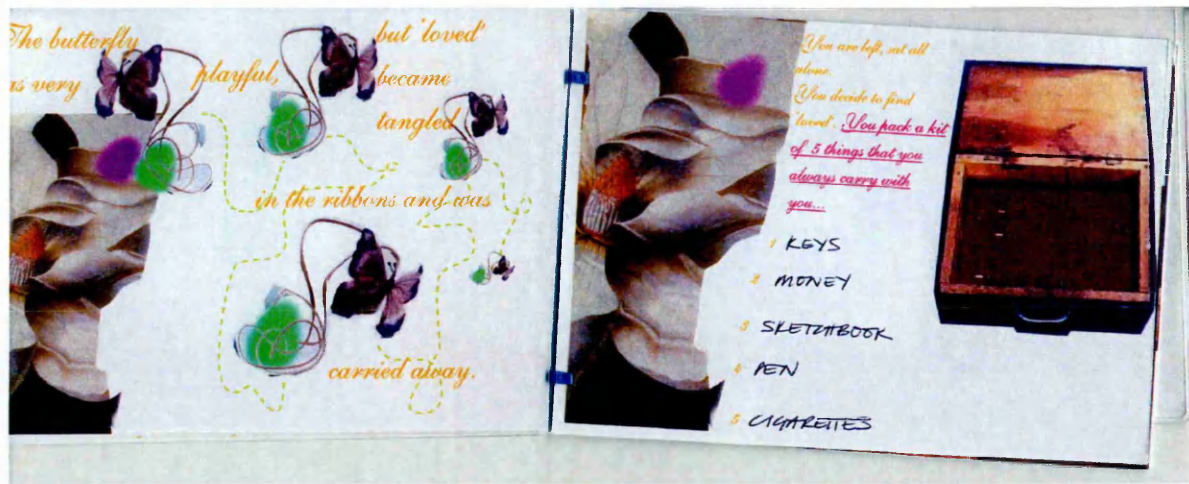 The butterfly
as very
playful,
but 'loved'
became
tangled
in the ribbons and was
carried away.
You are left, sat all
alone.
You decide to find
'loved'. You pack a kit
of 5 things that you
always carry with
you...
1 KEYS
2 MONEY
3 SKETCHBOOK
4 PEN
5 CIGARETTES